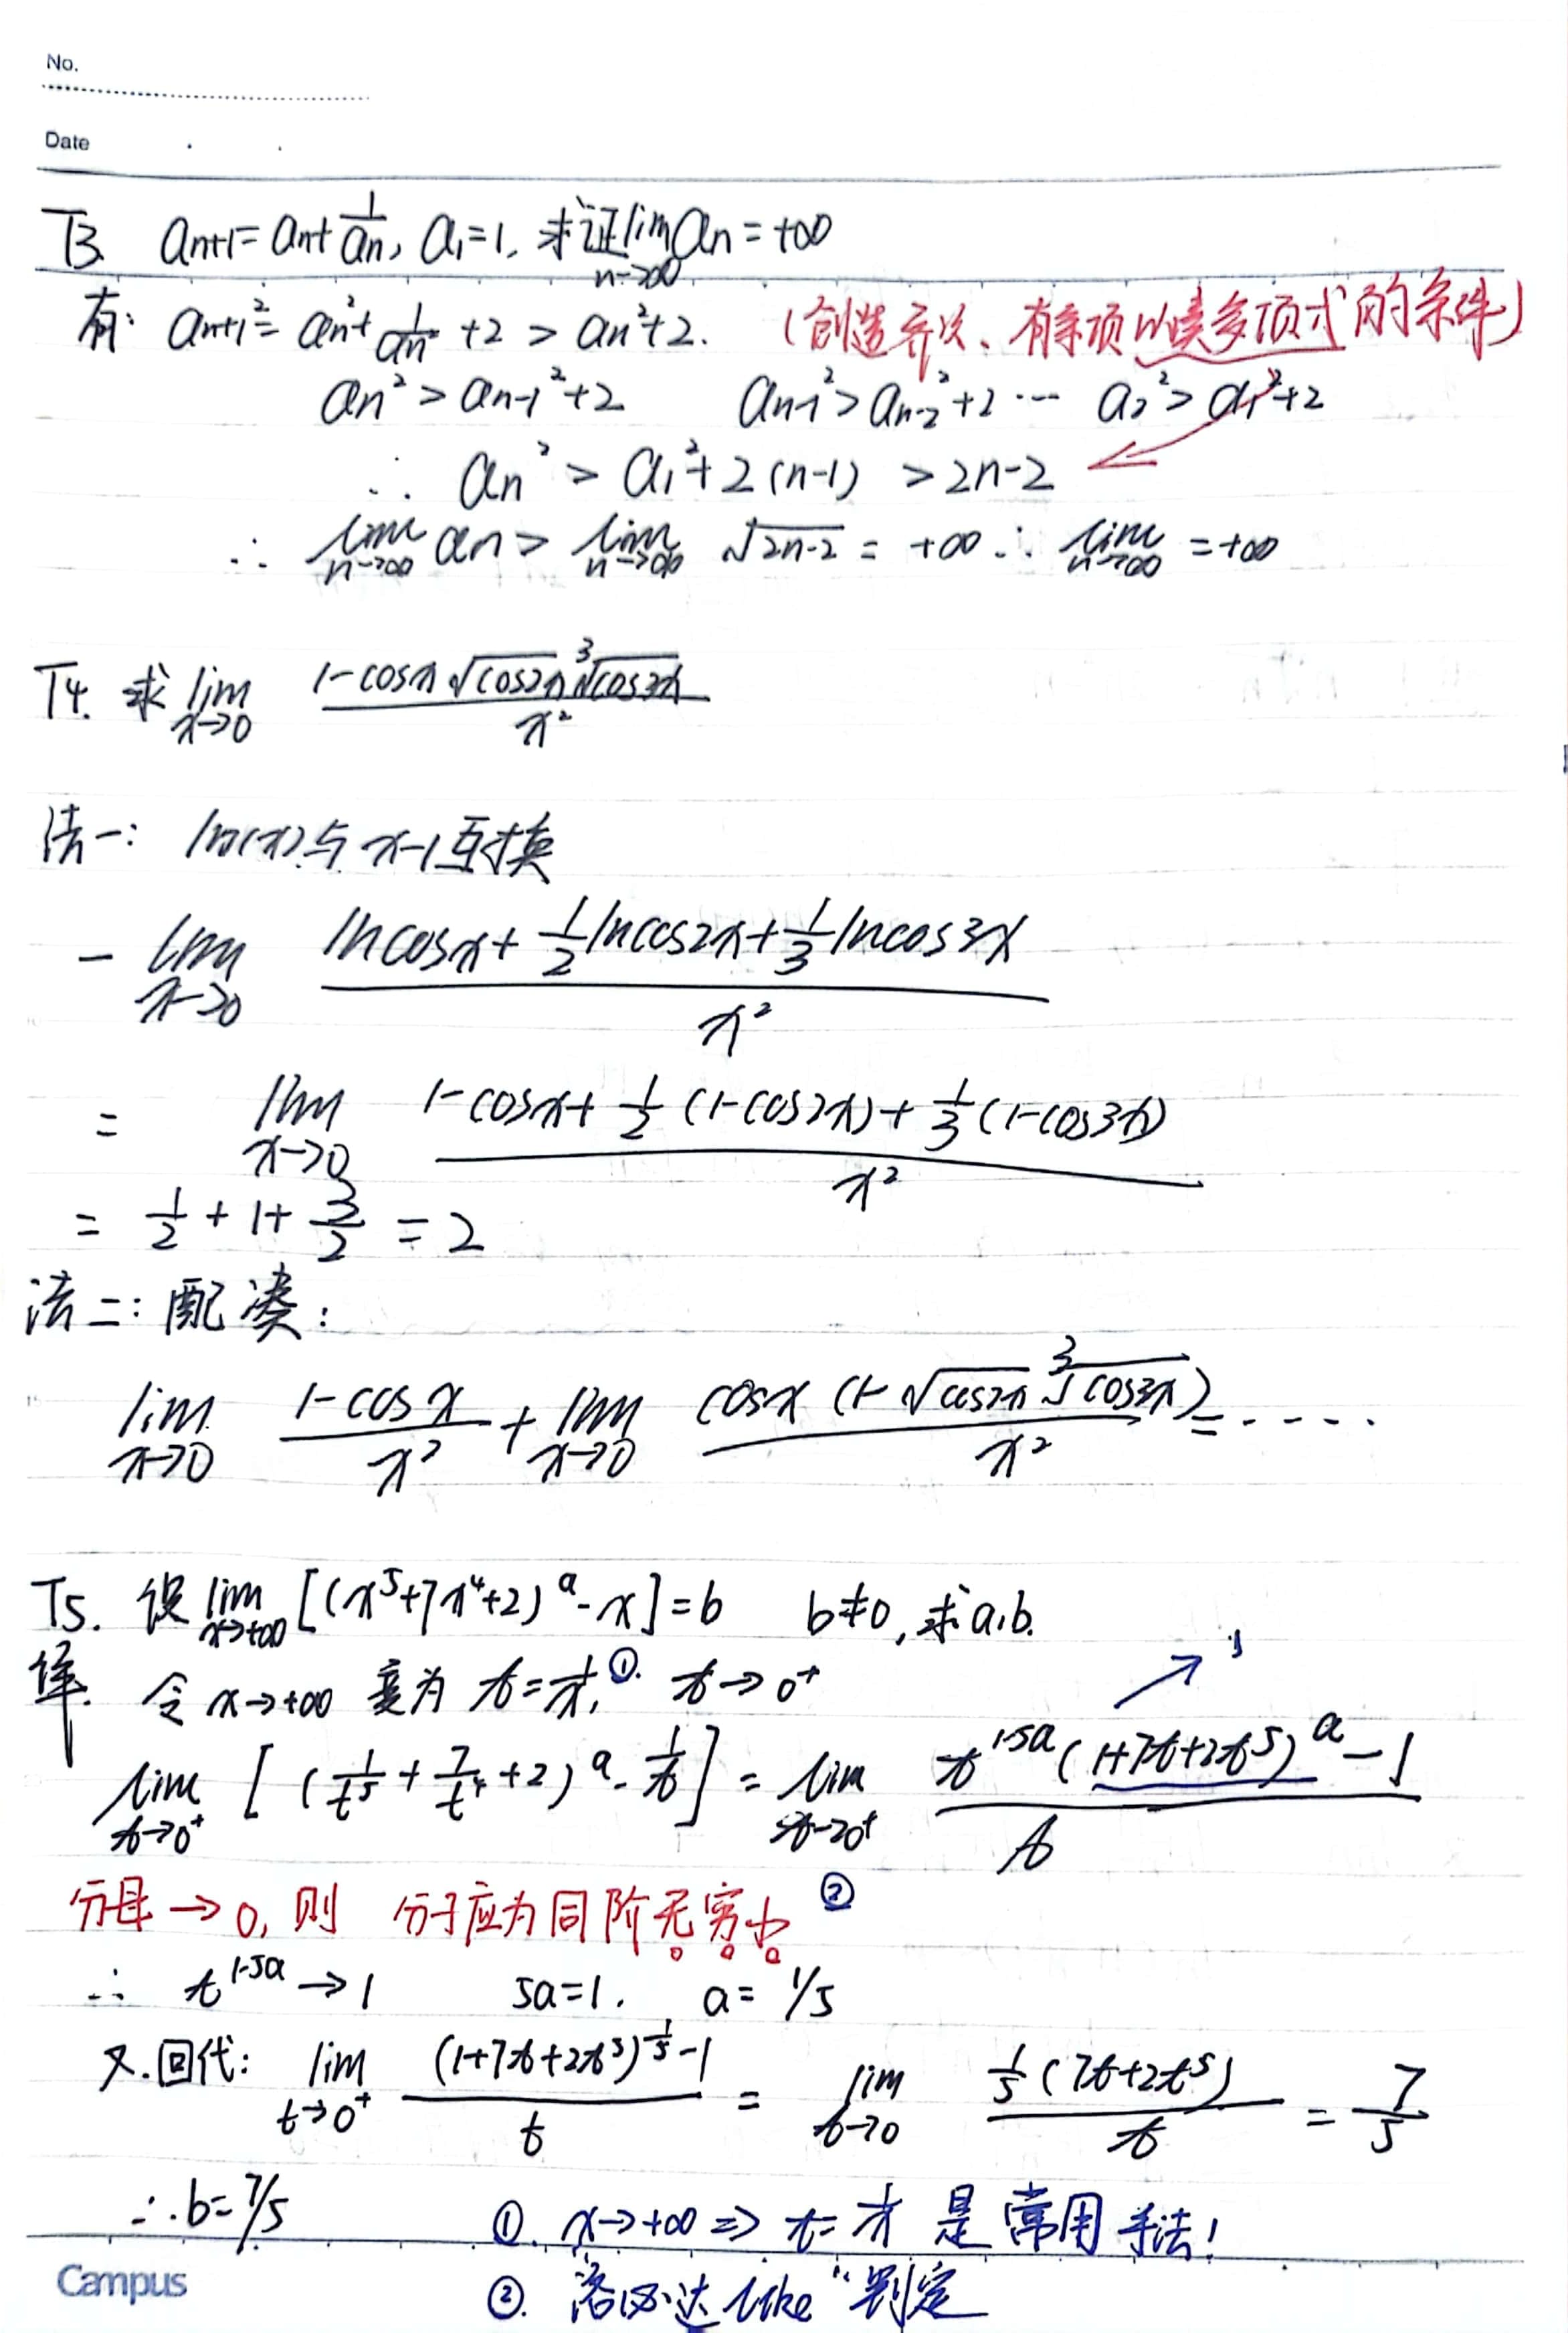 No.
Date
T3. aₙ₊₁=aₙ+1/aₙ, a₁=1, 求证 lim n→∞ aₙ=+∞
有: aₙ₊₁²=aₙ²+1/aₙ²+2>aₙ²+2. (创造齐次、有常项以凑多项式的条件)
aₙ²>aₙ₋₁²+2 aₙ₋₁²>aₙ₋₂²+2 ⋯ a₂²>a₁²+2
∴ aₙ²>a₁²+2(n-1)>2n-2
∴ lim n→∞ aₙ> lim n→∞ √(2n-2)=+∞ ∴ lim n→∞ =+∞
T4. 求 lim x→0 (1-cosx √(cos2x) ³√(cos3x))/x²
法一: ln(x)与x-1互换
- lim x→0 (lncosx+1/2 lncos2x+1/3 lncos3x)/x²
= lim x→0 (1-cosx+1/2(1-cos2x)+1/3(1-cos3x))/x²
= 1/2+1+3/2=2
法二: 配凑:
lim x→0 (1-cosx)/x² + lim x→0 cosx(1-√(cos2x) ³√(cos3x))/x² =-----
T5. 设 lim x→+∞ [(x⁵+7x⁴+2)ᵃ-x]=b b≠0, 求a,b.
解. 令x→+∞ 变为 t=1/x, ① t→0⁺
lim t→0⁺ [(1/t⁵+7/t⁴+2)ᵃ-1/t] = lim t→0⁺ (t¹⁻⁵ᵃ(1+7t+2t⁵)ᵃ-1)/t → 1
分母→0, 则 分子应为同阶无穷小 ②
∴ t¹⁻⁵ᵃ→1 5a=1. a=1/5
又.回代: lim t→0⁺ ((1+7t+2t⁵)^(1/5)-1)/t = lim t→0 (1/5(7t+2t⁵))/t = 7/5
∴b=7/5 ①. x→+∞ ⇒ t=1/x 是常用手法!
Campus
②. 洛必达like“判定